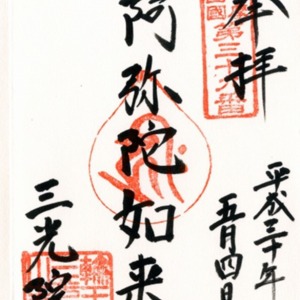 奉拝
第三十九番
平成三十年
五月四日
阿弥陀如来
三光院